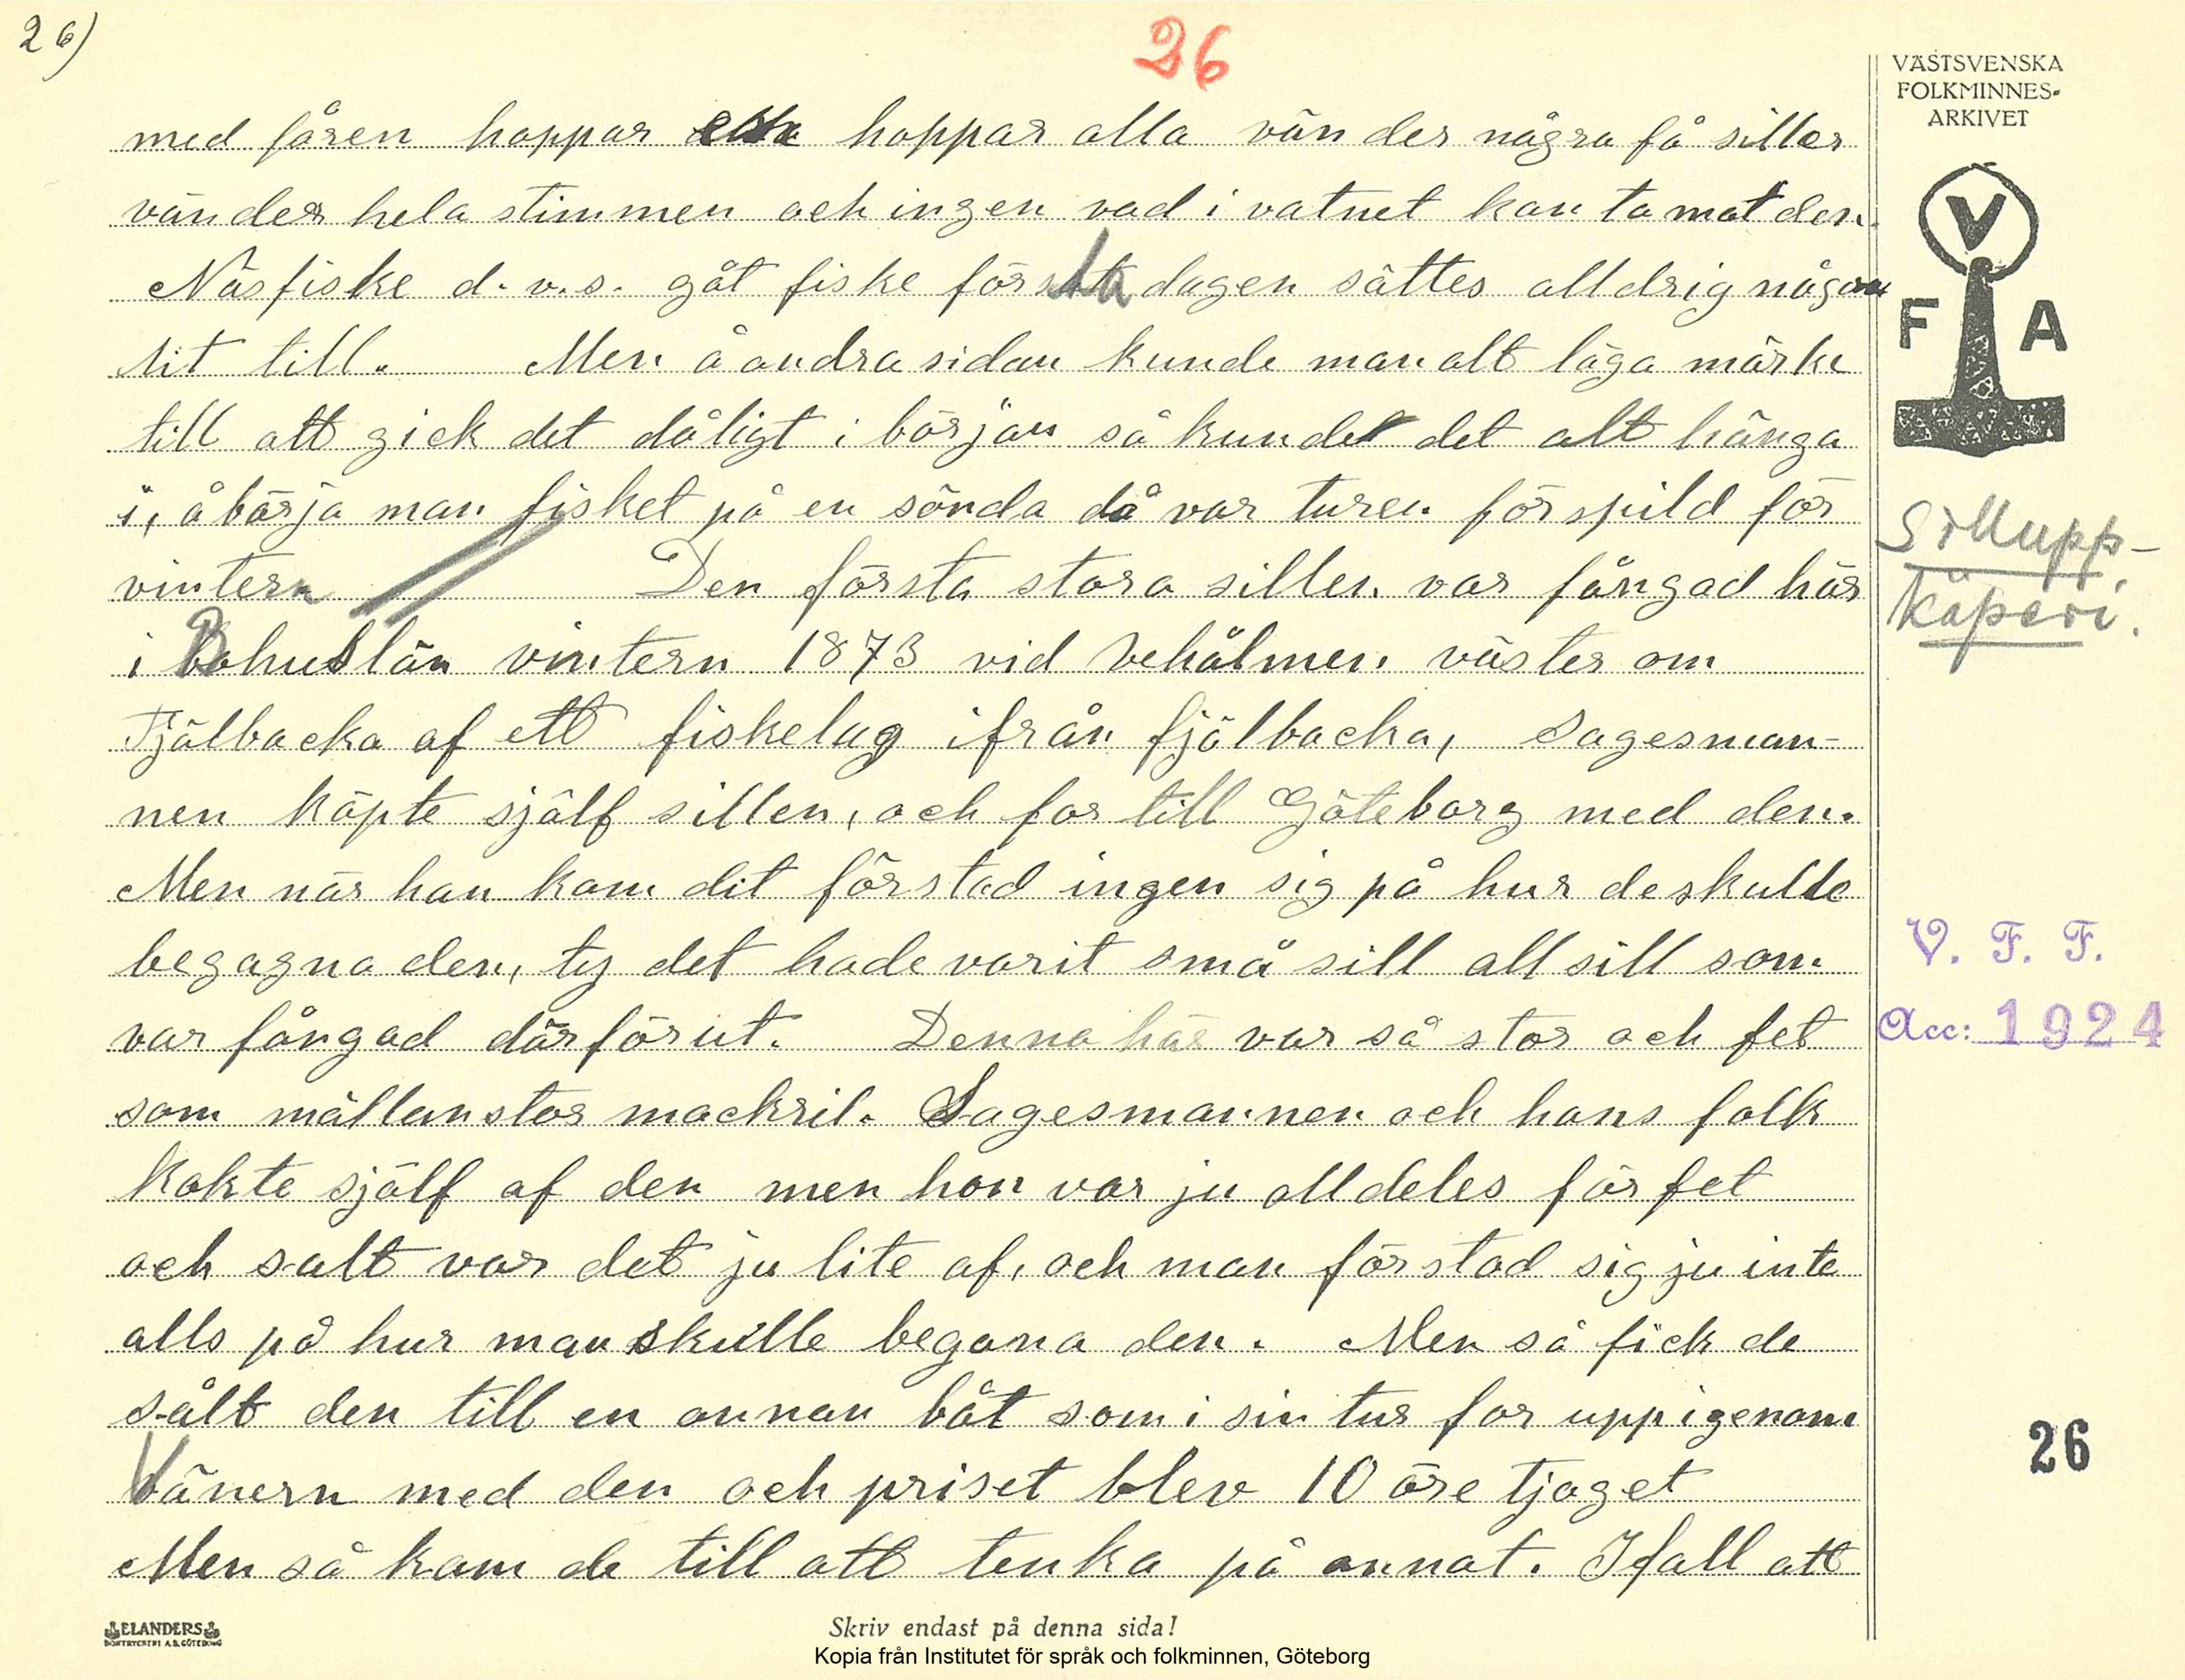 26)
26
VÄSTSVENSKA
FOLKMINNES-
ARKIVET
med fåren hoppar hoppar alla vänder några få siller
vänder hela stimmen och ingen vad i vatnet kan ta mot den.
Näsfiske d.v.s. gåt fiske första dagen sättes alldrig någon
lit till. Men å andra sidan kunde man alt läga märke
till att gick det dåligt i början så kunde det alt hänga
i, å börja man fisket på en sönda då var turen förspild för
vintern Den första stora sillen var fångad här
i Bohuslän vintern 1873 vid Vehålmen väster om
Fjälbacka af ett fiskelag ifrån fjälbacka, Sagesman-
nen köpte själf sillen, och for till Göteborg med den.
Men när han kom dit förstod ingen sig på hur de skulle
begagna den, ty det hade varit små sill all sill som
var fångad därförut. Denna här var så stor och fet
som mällanstor mackril. Sagesmannen och hans folk
kokte själf af den men hon var ju alldeles för fet
och salt var det ju lite af, och man förstod sig ju inte
alls på hur man skulle begana den. Men så fick de
sålt den till en annan båt som i sin tur for upp igenom
Vänern med den och priset blev 10 öre tjoget
Men så kom de till att tenka på annat. Ifall att
V
F A
Sillupp-
köperi.
V. F. F.
Acc: 1924
26
ELANDERS
BOKTRYCKERI A.B. GÖTEBORG
Skriv endast på denna sida!
Kopia från Institutet för språk och folkminnen, Göteborg